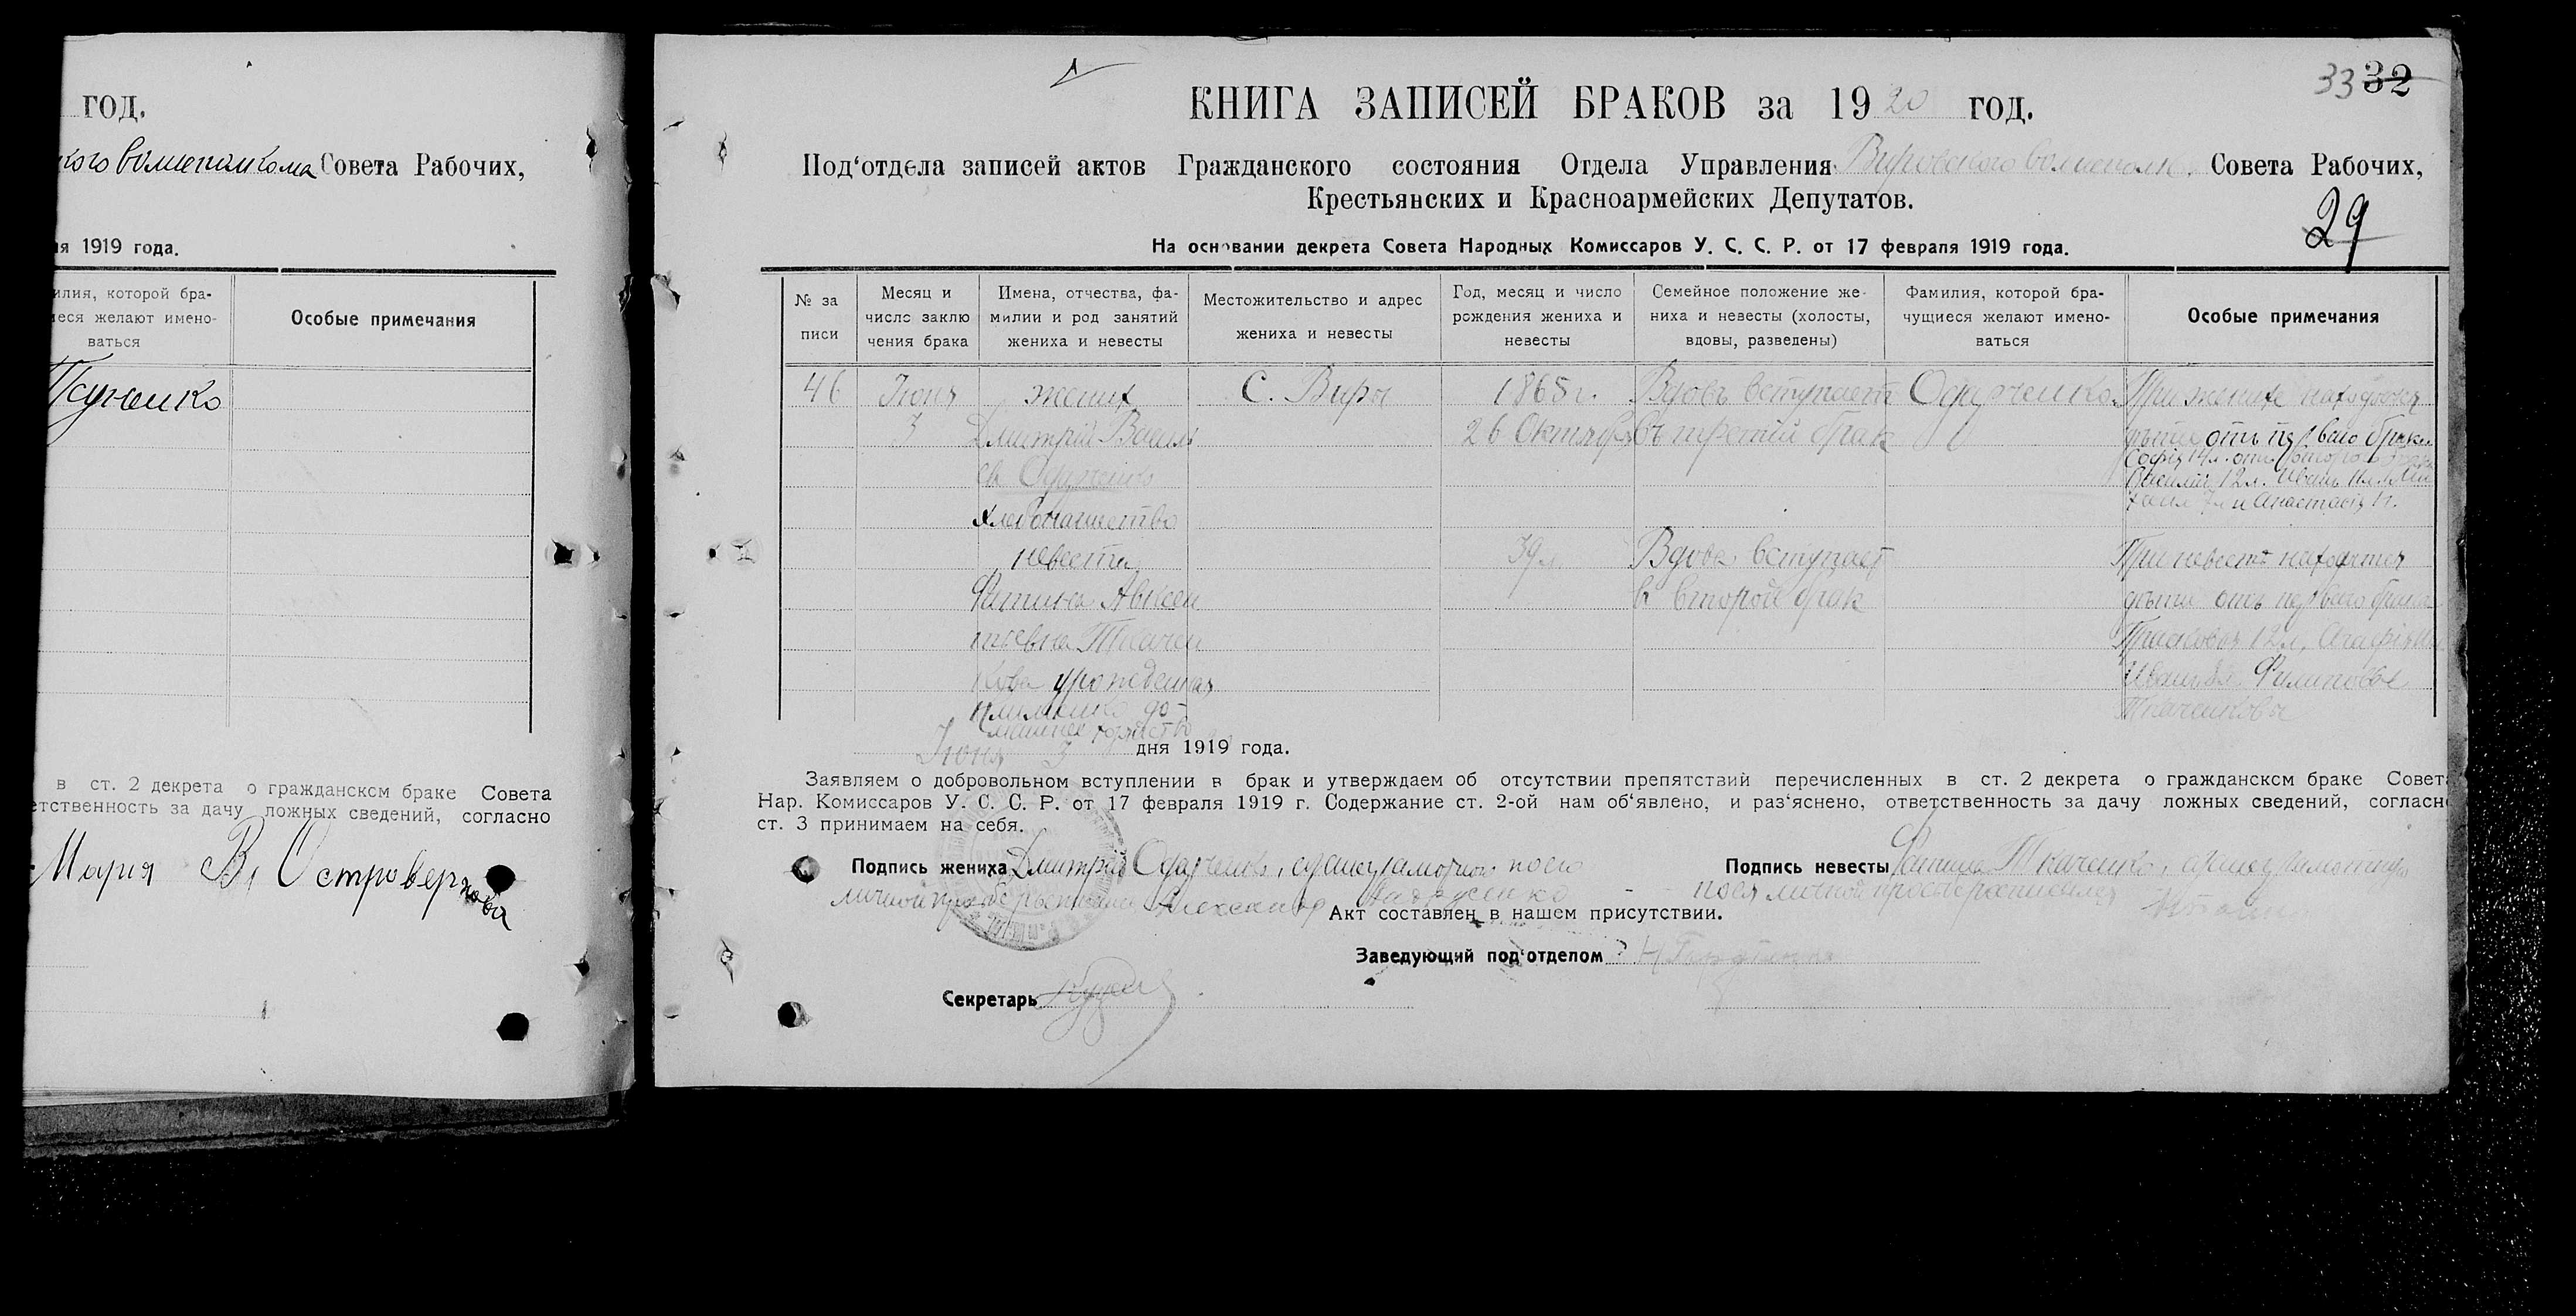 ГОД.
Совета Рабочих,
1919 года.
Особые примечания
ваться
в ст. 2 декрета о гражданском браке Совета
за дачу ложных сведений, согласно
Мария В. Островерхова
33 32
КНИГА ЗАПИСЕЙ БРАКОВ за 1920 год.
Под‘отдела записей актов Гражданского состояния Отдела Управления Совета Рабочих,
Крестьянских и Красноармейских Депутатов.
29
На основании декрета Совета Народных Комиссаров У. С. С. Р. от 17 февраля 1919 года.
№ за
писи
Месяц и
число заклю
чения брака
Имена, отчества, фа-
милии и род занятий
жениха и невесты
Местожительство и адрес
жениха и невесты
Год, месяц и число
рождения жениха и
невесты
Семейное положение же-
ниха и невесты (холосты,
вдовы, разведены)
Фамилия, которой бра-
чущиеся желают имено-
ваться
Особые примечания
46
Июня
3
жених
Дмитрій Василь
ев Одарченко
хлебопашество
невеста
Фатина Авксен
тьевна Ткачен
кова урожденная
Клименко до-
машнее хозяйство
С. Виры
1865 г.
26 Октября
39 л.
Вдовъ вступает
въ третий брак
Вдова вступает
в второй брак
Одарченко
При женихе находятся
дѣти отъ первого брака
Софія 14 л. отъ второго брака
Василій 12 л. Иванъ 11 л. Ми
хаил 7 л и Анастасія 1 г.
При невестѣ находятся
дѣти отъ первого брака
Прасковья 12 л, Агафія
Иван Филиповы
Ткаченковы
Июня 3 дня 1919 года.
Заявляем о добровольном вступлении в брак и утверждаем об отсутствии препятствий перечисленных в ст. 2 декрета о гражданском браке Совета
Нар. Комиссаров У. С. С. Р. от 17 февраля 1919 г. Содержание ст. 2-ой нам об‘явлено, и раз‘яснено, ответственность за дачу ложных сведений, согласно
ст. 3 принимаем на себя.
Подпись жениха Дмитрій Одарченко, а
личной Александр Андрусенко
Подпись невесты Фатина Ткаченко,
личной
Акт составлен в нашем присутствии.
Заведующий под‘отделом
Секретарь